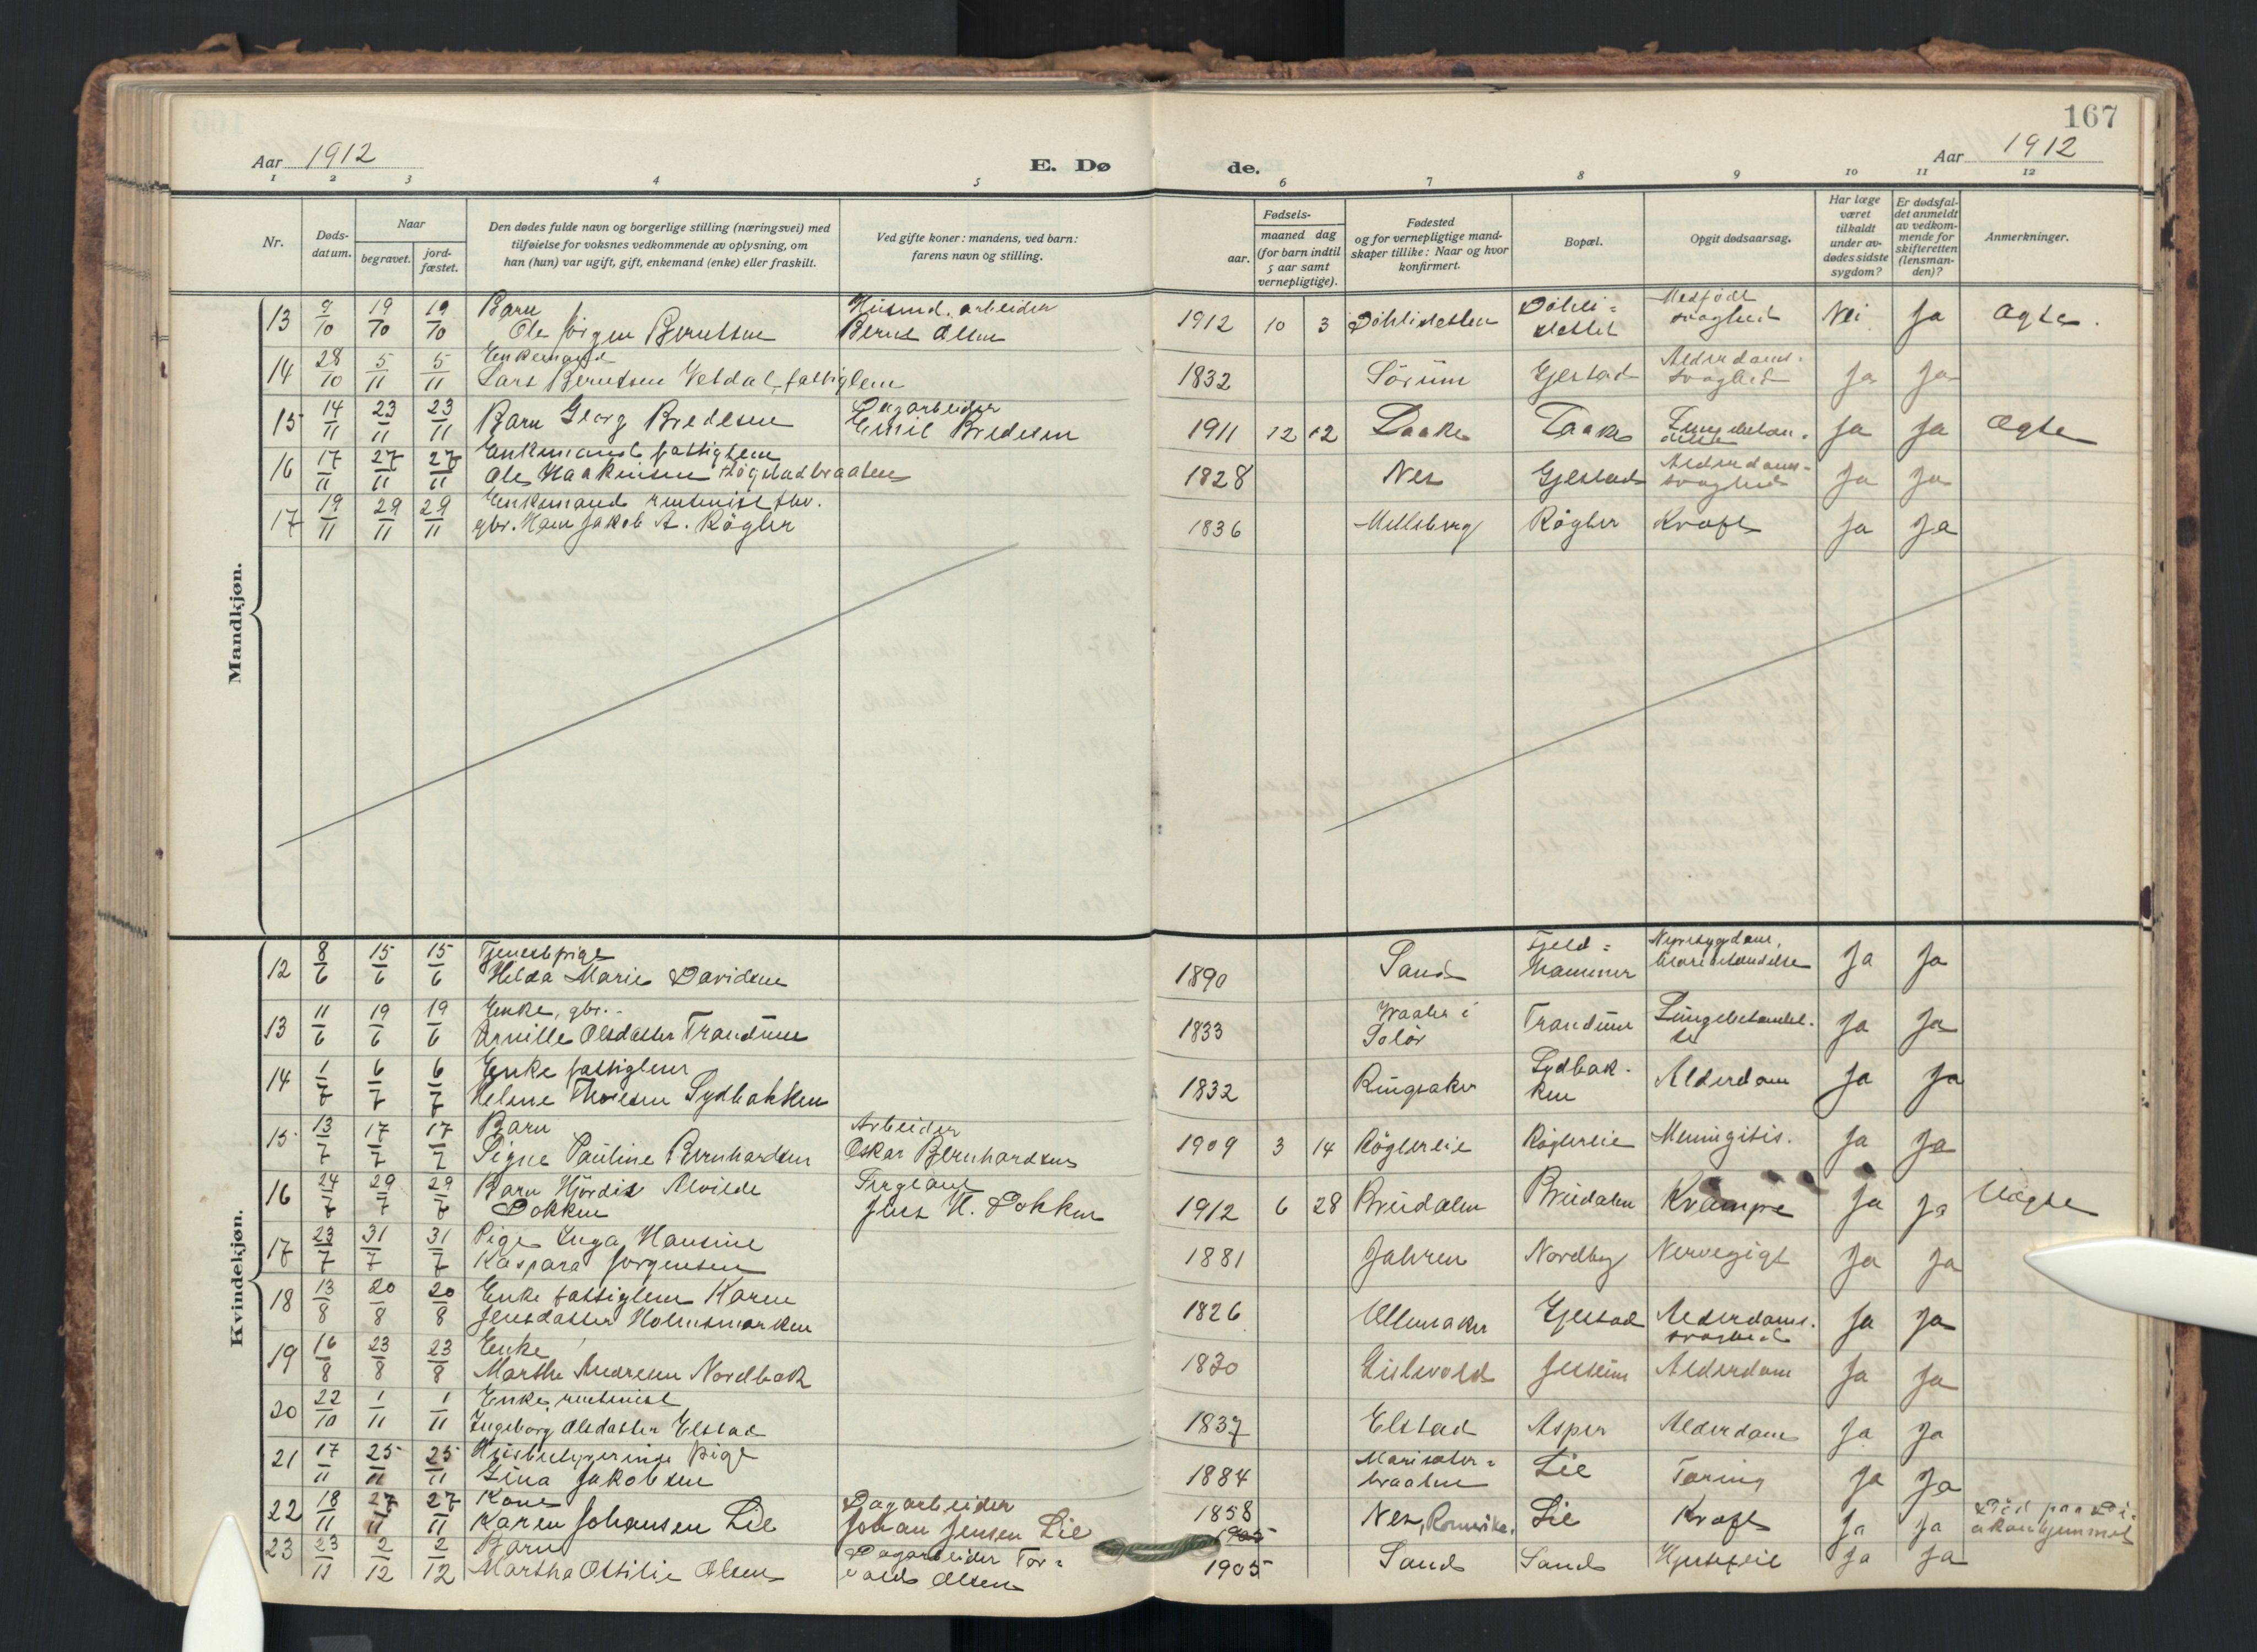 167
Aar 1912
E. Dø
de.
Aar 1912
1 2 3 4 5 6 7 8 9 10 11 12
Nr.
Døds-
datum.
Naar
begravet.
jord-
fæstet.
Den dødes fulde navn og borgerlige stilling (næringsvei) med
tilføielse for voksnes vedkommende av oplysning, om
han (hun) var ugift, gift, enkemand (enke) eller fraskilt.
Ved gifte koner: mandens, ved barn:
farens navn og stilling.
Fødsels-
aar.
maaned dag
(for barn indtil
5 aar samt
vernepligtige).
Fødested
og for vernepligtige mand-
skaper tillike: Naar og hvor
konfirmert.
Bopæl.
Opgit dødsaarsag.
Har læge
været
tilkaldt
under av-
dødes sidste
sygdom?
Er dødsfal-
det anmeldt
av vedkom-
mende for
skifteretten
(lensman-
den)?
Anmerkninger.
Mandkjøn.
13 9/10 19/10 19/10 Barn
Ole Jörgen Berntsen
Husmd. arbeider
Bernt Olsen
1912 10 3 Döhlisletten
Döhli=
sletten
Medfödt
svaghed
Nei Ja Ægte.
14 28/10 5/11 5/11 Enkemand
Lars Berntsen Veldal, fattiglem
1832 Sörum Gjestad
Alderdoms-
svaghed
Ja Ja
15 14/11 23/11 23/11 Barn Georg Bredesen
Dagarbeider
Emil Bredesen
1911 12 12 Laake Laake
Lungebetæn-
delse
Ja Ja Ægte
16 17/11 27/11 27/11 Enkemand fattiglem
Ole Haakensen Högstadbraaten
1828 Nes Gjestad
Alderdoms-
svaghed
Ja Ja
17 19/11 29/11 29/11 Enkemand rentenist fhv.
gbr. Hans Jakob A. Rögler
1836 Røgler Kræft Ja Ja
Kvindekjøn.
12 8/6 15/6 15/6 Tjenestpige
Helda Marie Davidsen
1890 Sand
Fjeld=
hammer
Nyresygdom,
Ja Ja
13 11/6 19/6 19/6 Enke, gbr.
Olsdatter Trandum
1833
Vaaler i
Solör
Trandum
Lungebetændel-
se
Ja Ja
14 1/7 6/7 6/7 Enke fattiglem
Helene Thoresen Sydbakken
1832 Ringsaker
Sydbak-
ken
Alderdom Ja Ja
15 13/7 17/7 17/7 Barn
Signe Pauline Bernhardsen
Arbeider
Oskar Bernhardsen
1909 3 14 Röglereie Röglereie Meningitis. Ja Ja
16 24/7 29/7 29/7 Barn Hjördis Alvilde
Dokken
Sergeant
Jens H. Dokken
1912 6 28 Brudalen Brudalen Krampe Ja Ja Uægte
17 23/7 31/7 31/7 Pige Inga Hansine
Kaspara Jørgensen
1881 Jahren Nordby Nervegigt Ja Ja
18 13/8 20/8 20/8 Enke fattiglem Karen
Jensdatter Holmsmarken
1826 Ullensaker Gjestad
Alderdoms-
svaghed
Ja Ja
19 16/8 23/8 23/8 Enke
Marthe Andresen Nordbak
1830 Gislevold Jessheim Alderdom Ja Ja
20 22/10 1/11 1/11 Enke, rentenist
Ingeborg Olsdatter Elstad
1837 Elstad Asper Alderdom Ja Ja
21 17/11 25/11 25/11 Husbestyrerinde pige
Gina Jakobsen
1884
braaten
Lie Tæring Ja Ja
22 18/11 27/11 27/11 Kone
Karen Johansen Lie
Dagarbeider
Johan Jensen Lie
1858 Nes, Romerike. Lie Kræft Ja Ja
Död paa Di-
akonhjemmet
1905
23 23/11 2/12 2/12 Barn
Martha Ottilie Olsen
Dagarbeider Tor=
vald Olsen
1905 Sand Sand Hjertefeil Ja Ja